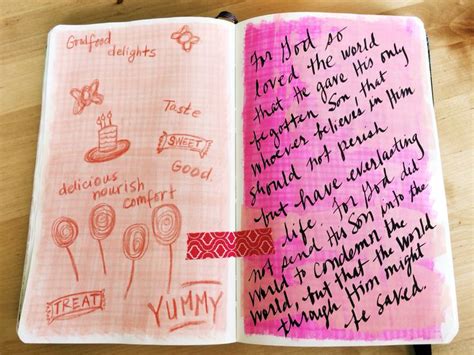 delights
Taste
SWEET
Good.
delicious
nourish
comfort
TREAT
YUMMY
For God so
loved the world
that He gave His only
begotten Son, that
whoever believes in Him
should not perish
but have everlasting
life. For God did
not send His Son into the
world to condemn the
world, but that the world
through Him might
be saved.